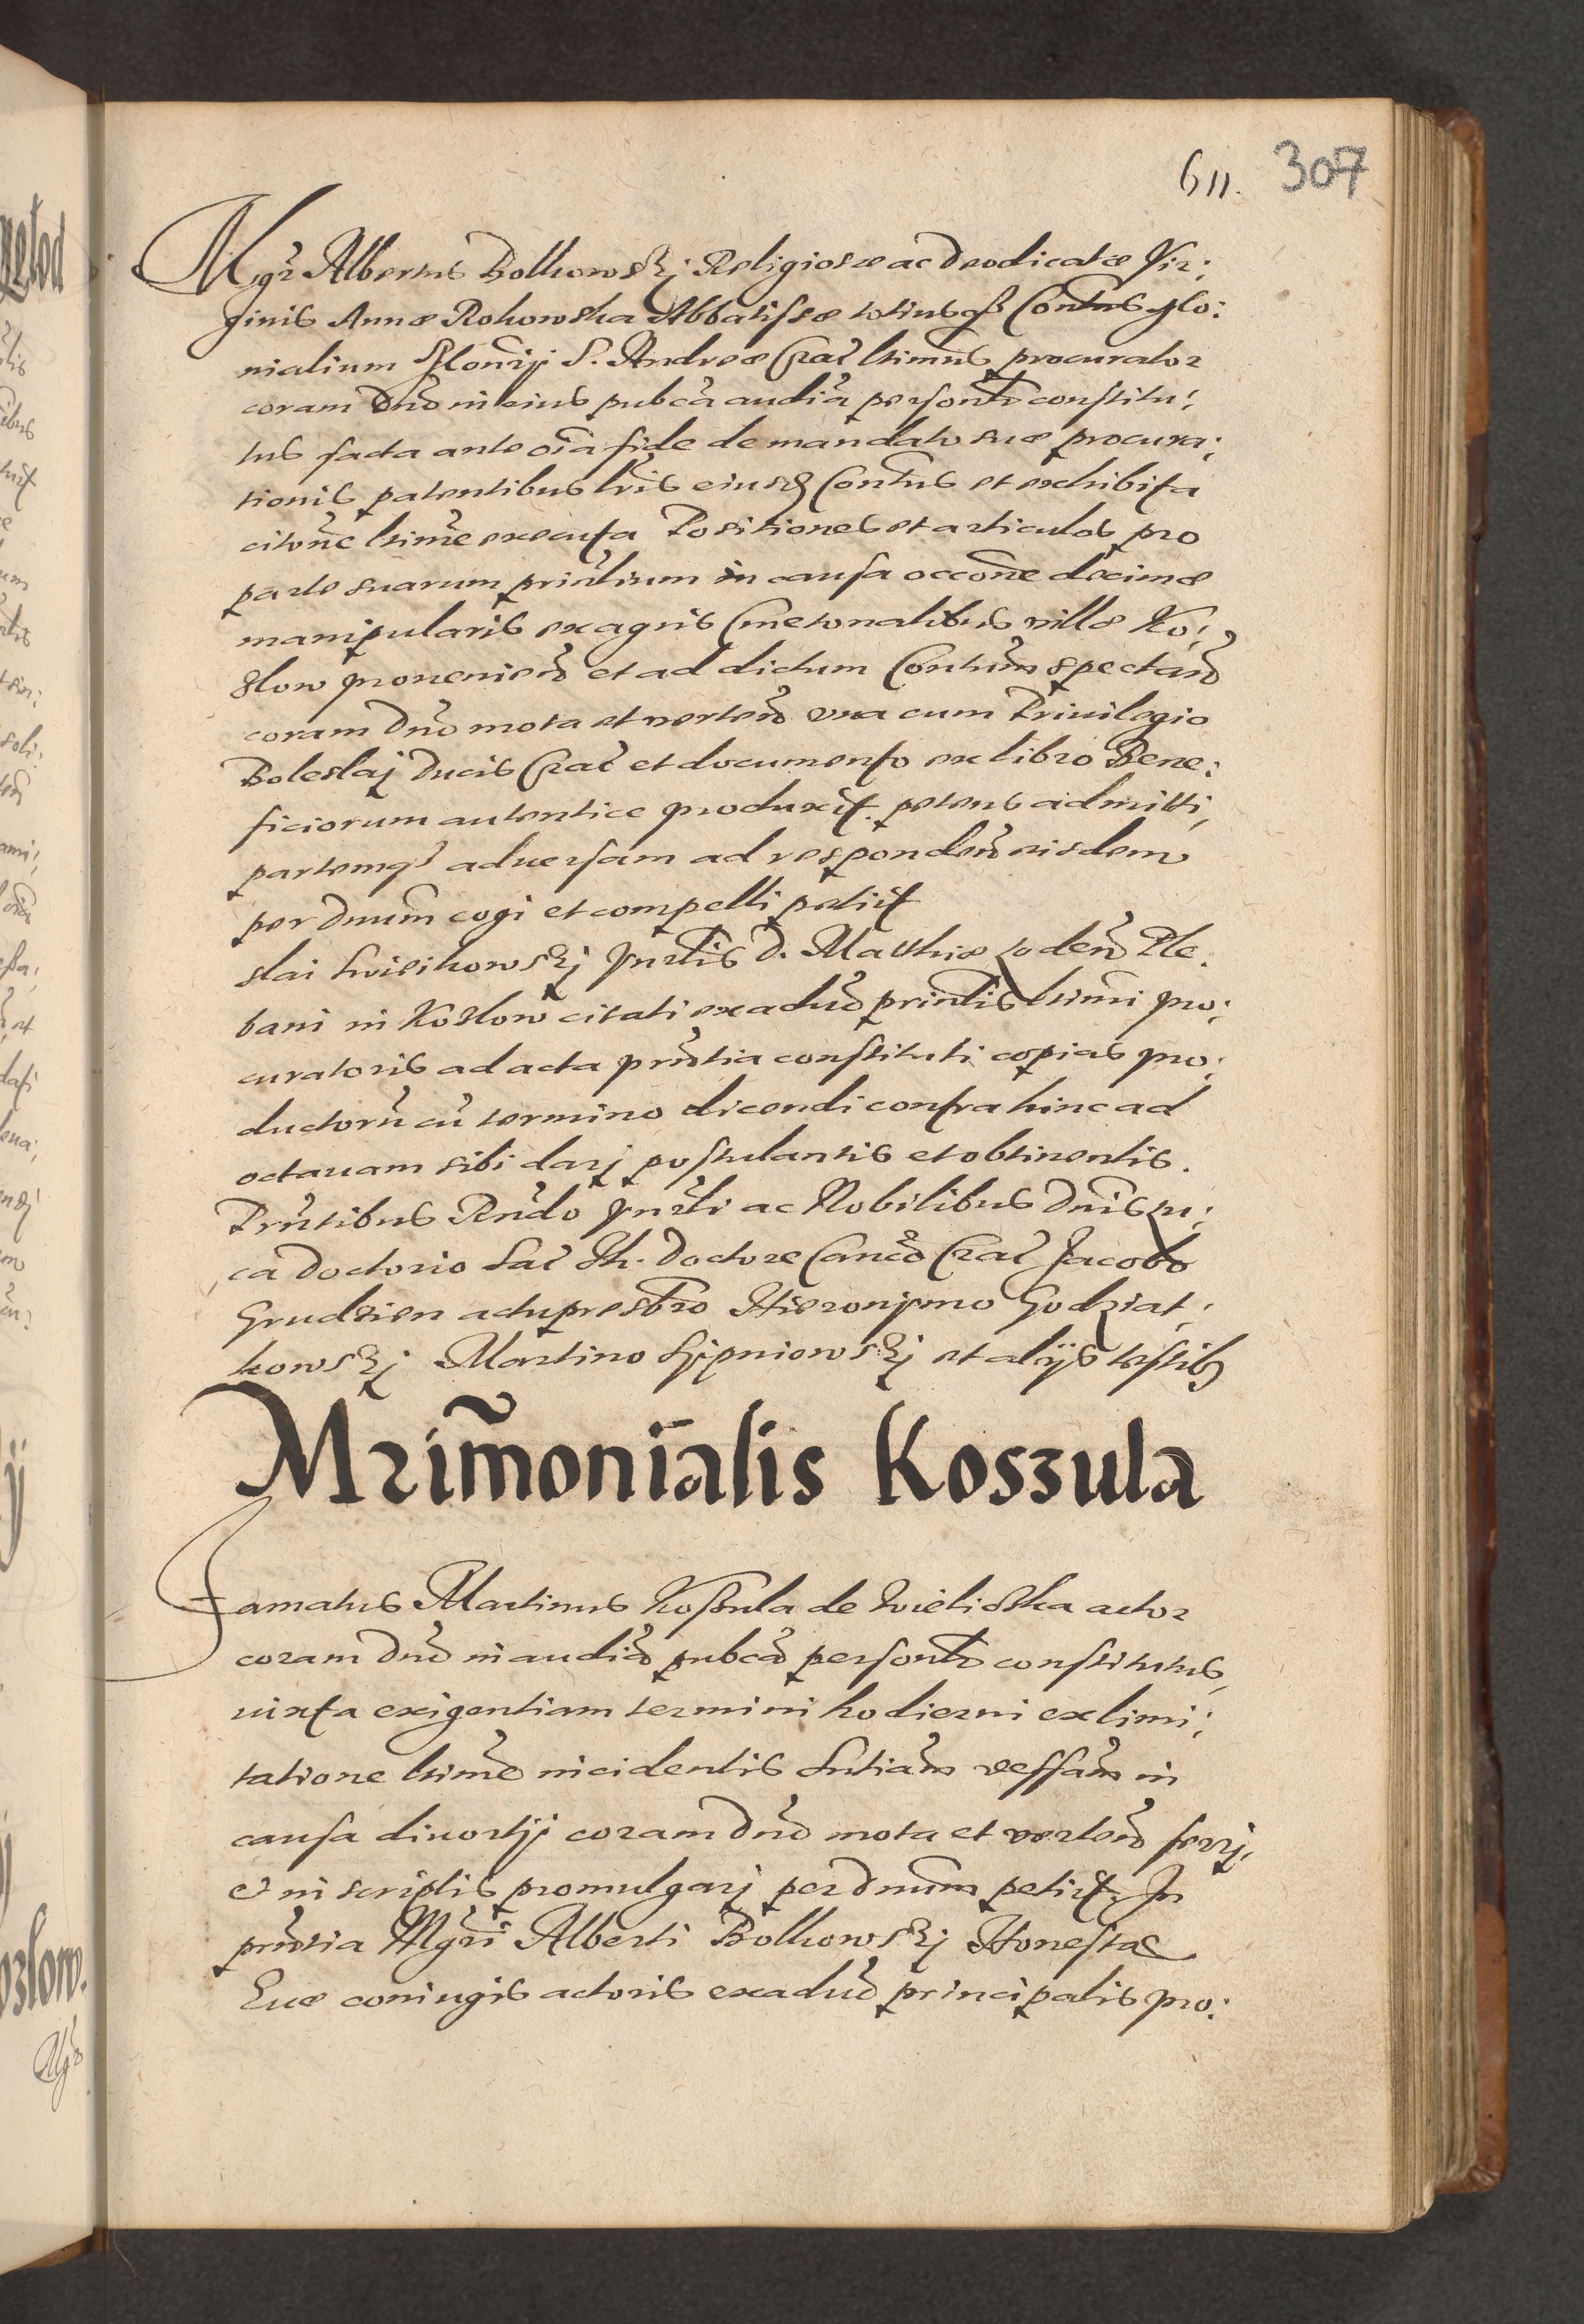 611. 307
Mgr Albertus Bolkowskj Religiosæ ac deodicatæ Vir:
ginis Annæ Rokowska Abbatissæ totiusq3 Contus Mo:
nialium Monrij S. Andreæ Crac ltimus procurator
coram Dno in eius pubca audia personlr constitu:
tus facta ante oia fide de mandato suæ procura:
tionis patentibus lris eiusd Contus et exhibita
citone ltime executa Positiones et articulos pro
parte suarum prinlium in causa occone decimæ
manipularis ex agris Cmetonalibus villæ Ko:
zlow proueniend et ad dictum Contum spectand
coram dno mota et vertend vna cum Priuilegio
Boleslaj Ducis Crac et documento ex libro Bene:
ficiorum autentice produxit petens admitti,
partemq3 aduersam ad respondend eisdem
per dnum cogi et compelli petiit
slai Kwikowskj Vnrlis D. Matthiæ Ple:
bani in Kozlow citati ex aduo prinlis ltimi pro:
curatoris ad acta prntia constituti copias pro:
ductoru cu termino dicendi contra hinc ad
octauam sibi darj postulantis et obtinentis.
Prntibus Rndo Vnrli ac Nobilibus Dnis Lu:
ca Doctorio Sac Th. Doctore Canco Crac Jacobo
Grudzien actu presbro Hieronymo Godziat:
kowskj Martino Lipniowskj et alijs testib3
Mrimonialis Koszula
Famatus Martinus Koszula de Wieliczka actor
coram Dno in audia pubca personlr constitutus,
iuxta exigentiam termini hodierni ex limi:
tatione ltime incidentis Sntiam in
causa diuortij coram Dno mota et vertend ferrj,
et in scriptis promulgarj per dnum petiit. In
prntia Mgri Alberti Bolkowskj Honestæ
Euæ coniugis actoris ex aduo principalis pro: